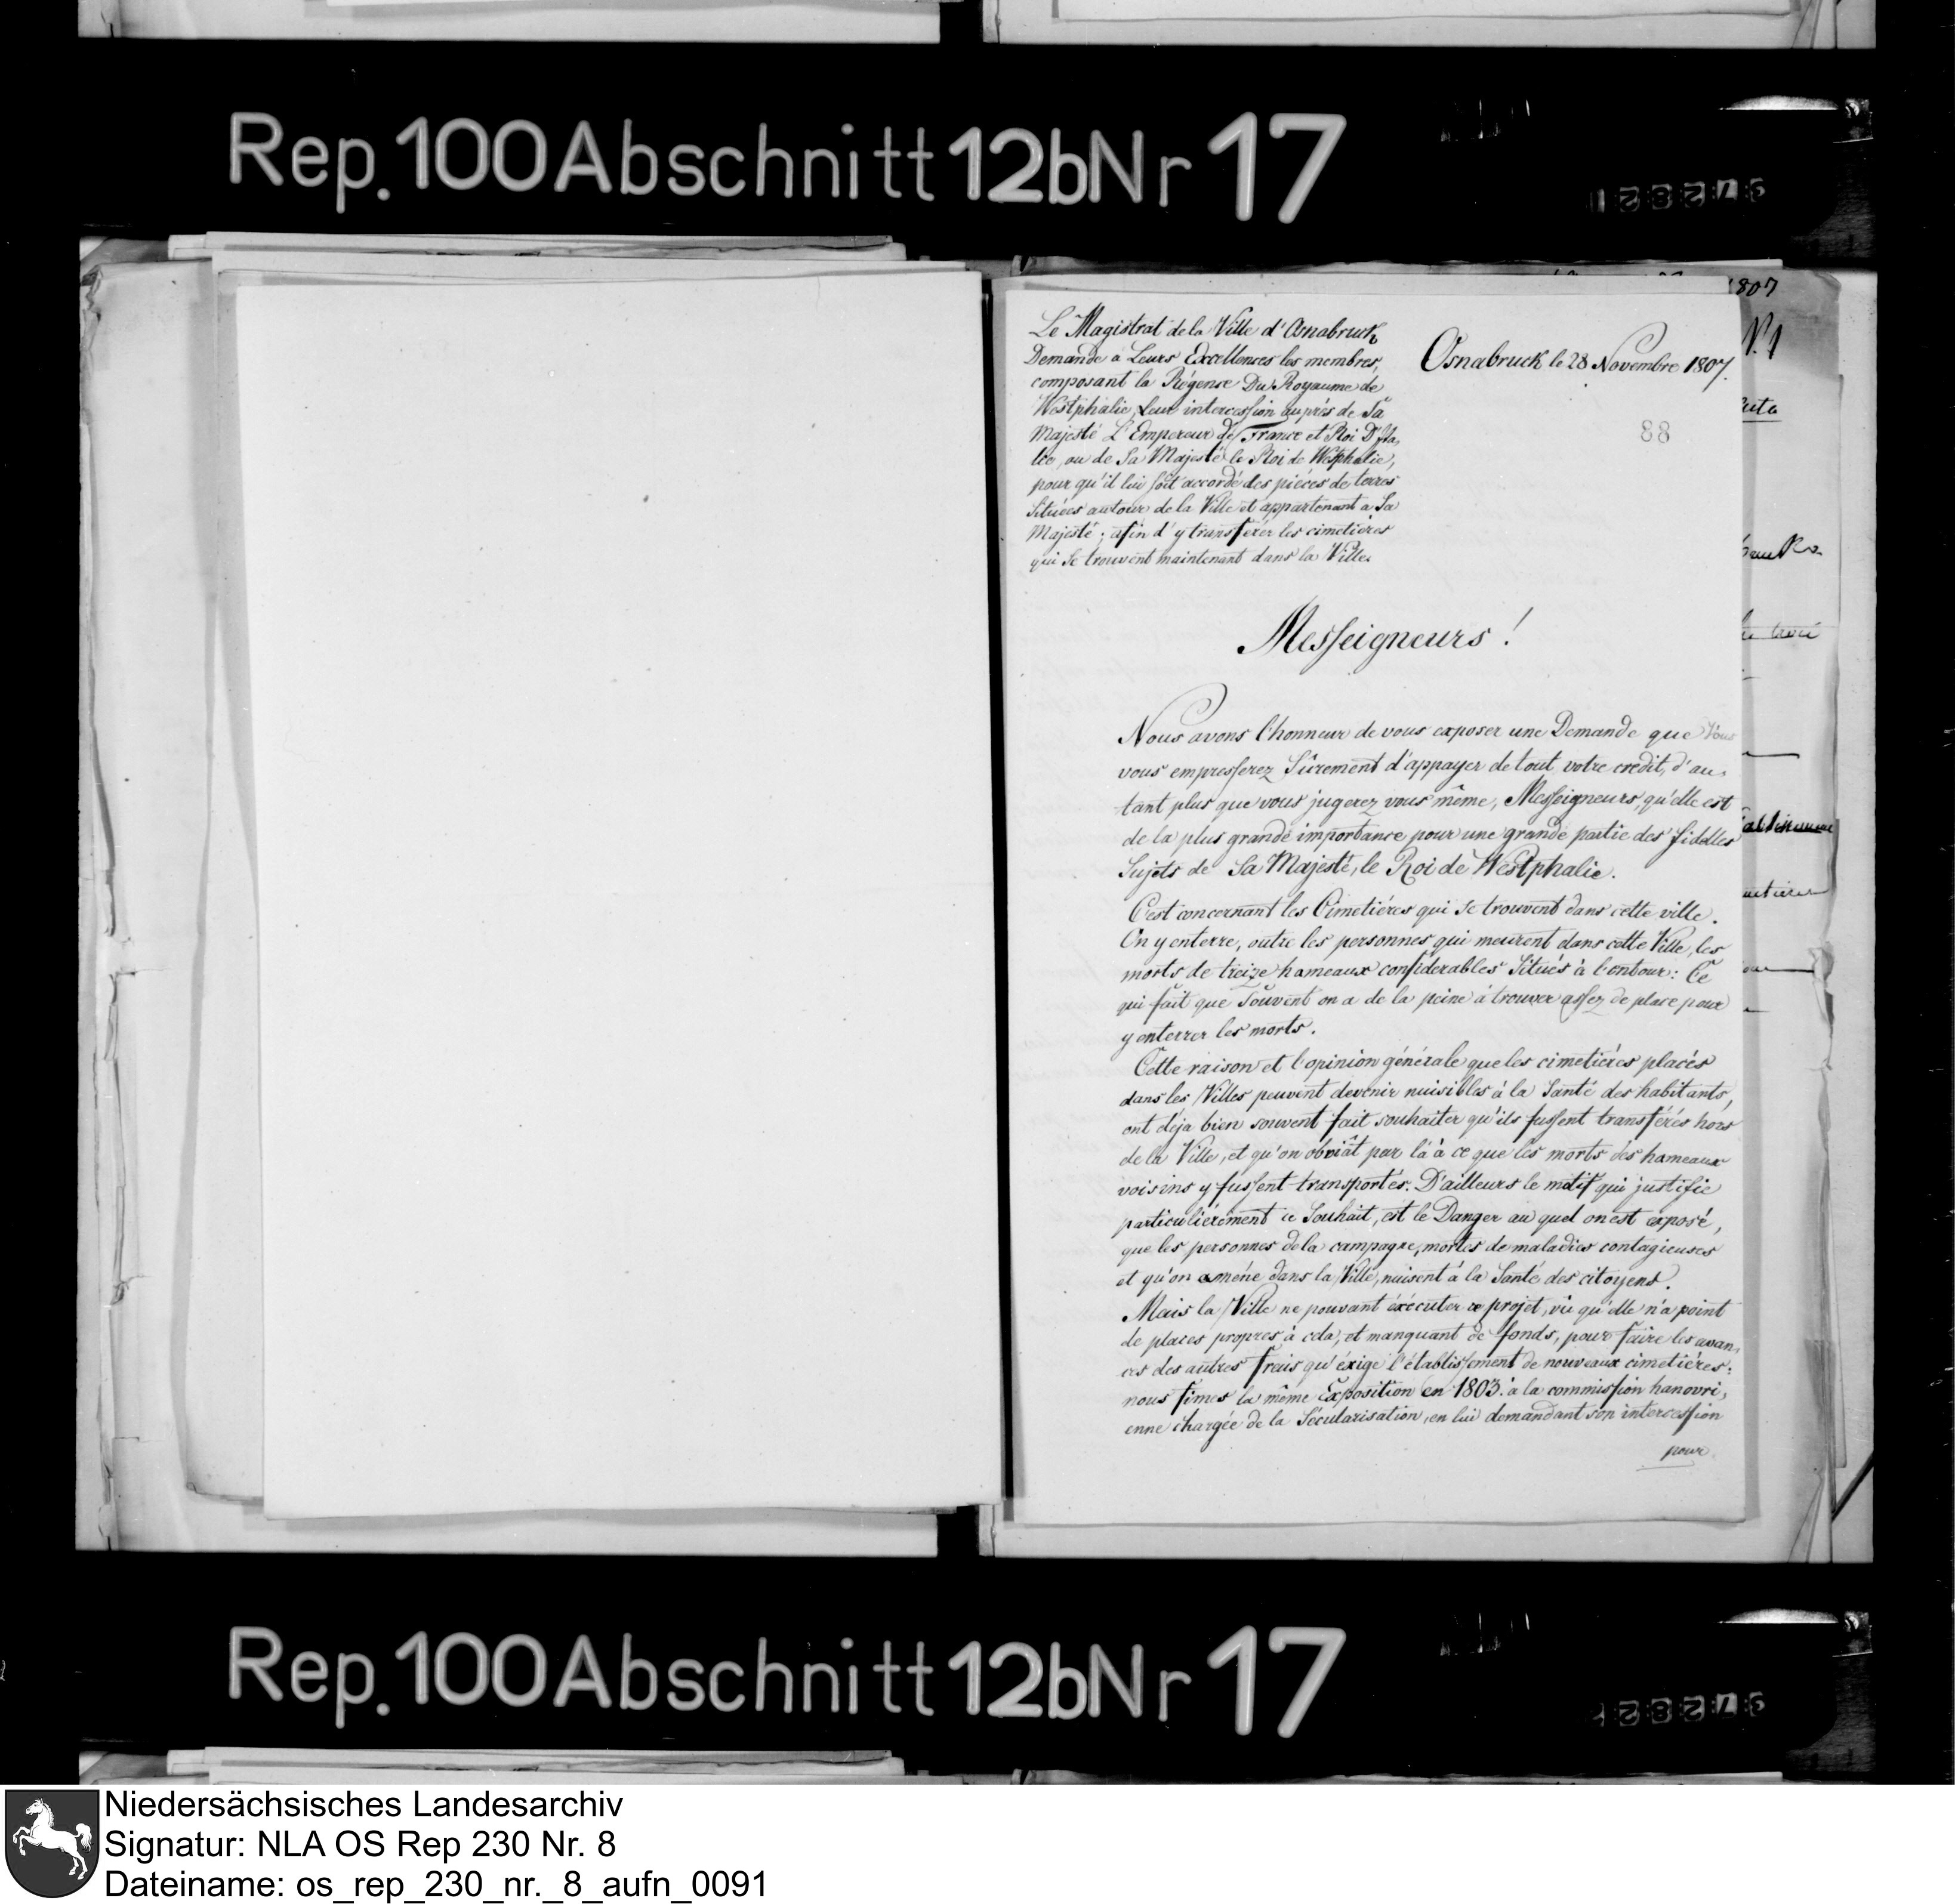 Rep. 100 Abschnitt 12b Nr 17
37282
1807
N. 1
Le Magistrat de la Ville d'Osnabruck
Demande à Leurs Excellences les membres,
composant la Régence Du Royaume de
Westphalie, Leur intercession auprès de Sa
Majesté L'Empereur de France et Roi D'Ita,
lie, ou de Sa Majesté le Roi de Westphalie,
pour qu'il lui soit accordé des pièces de terres
Situées autour de la Ville et appartenant a Sa
Majesté; afin d'y transferer les cimetières
qui Se trouvent maintenant dans la Ville.
Osnabruck le 28 Novembre 1807.
88
Messeigneurs!
Nous avons l'honneur de vous exposer une Demande que Vous
vous empresserez Sûrement d'appayer de tout votre credit, d'au,
tant plus que vous jugerez vous même, Messeigneurs, qu'elle est
de la plus grande importance pour une grande partie des fidelles
Sujets de Sa Majesté, le Roi de Westphalie.
C'est concernant les Cimetiéres qui Se trouvent dans cette ville.
On y enterre, outre les personnes qui meurent dans cette Ville, les
morts de treize hameaux considerables Situés à l'entour: Ce
qui fait que Souvent on a de la peine à trouver assez de place pour
y enterrer les morts.
Cette raison et l'opinion générale que les cimetiéres placés
dans les Villes peuvent devenir nuisibles à la Santé des habitants,
ont déja bien souvent fait souhaiter qu'ils fussent transférés hors
de la Ville, et qu'on obviât par là à ce que les morts des hameaux
voisins y fussent transportés. D'ailleurs le motif qui justifie
particuliérement ce Souhait, est le Danger au quel on est exposé,
que les personnes de la campagne, mortes de maladies contagieuses
et qu'on améne dans la Ville, nuisent à la Santé des citoyens.
Mais la Ville ne pouvant éxécuter ce projet, vû qu'elle n'a point
de places propres à cela, et manquant de fonds, pour faire les avan,
ces des autres frais qu'éxige l'établissement de nouveaux cimetiéres:
nous fimes la même Exposition en 1803. à la commission hanovri,
enne chargée de la Sécularisation, en lui demandant son intercession
pour
Rep. 100 Abschnitt 12b Nr 17
37282
Niedersächsisches Landesarchiv
Signatur: NLA OS Rep 230 Nr. 8
Dateiname: os_rep_230_nr._8_aufn_0091